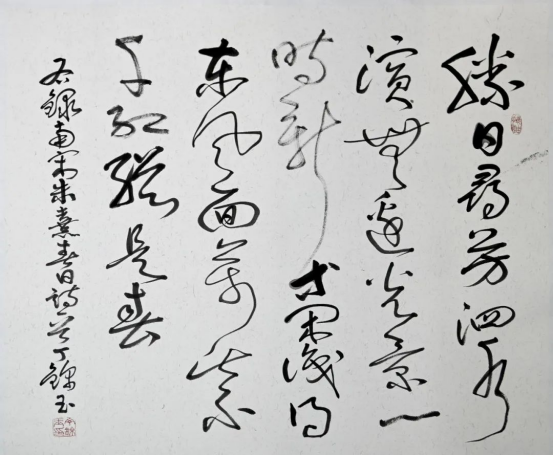 勝日尋芳泗水
濱無邊光景一
時新等閑識得
东風面萬紫
千紅總是春
右錄南宋朱熹春日詩一首丁錦玉